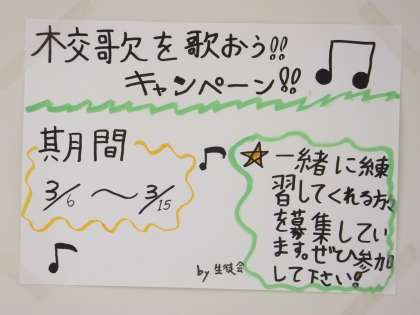 校歌を歌おう!!
キャンペーン!!
期間
3/6 ～ 3/15
☆一緒に練
習してくれる方々
を募集してい
ます。ぜひ参加
して下さい!
by 生徒会